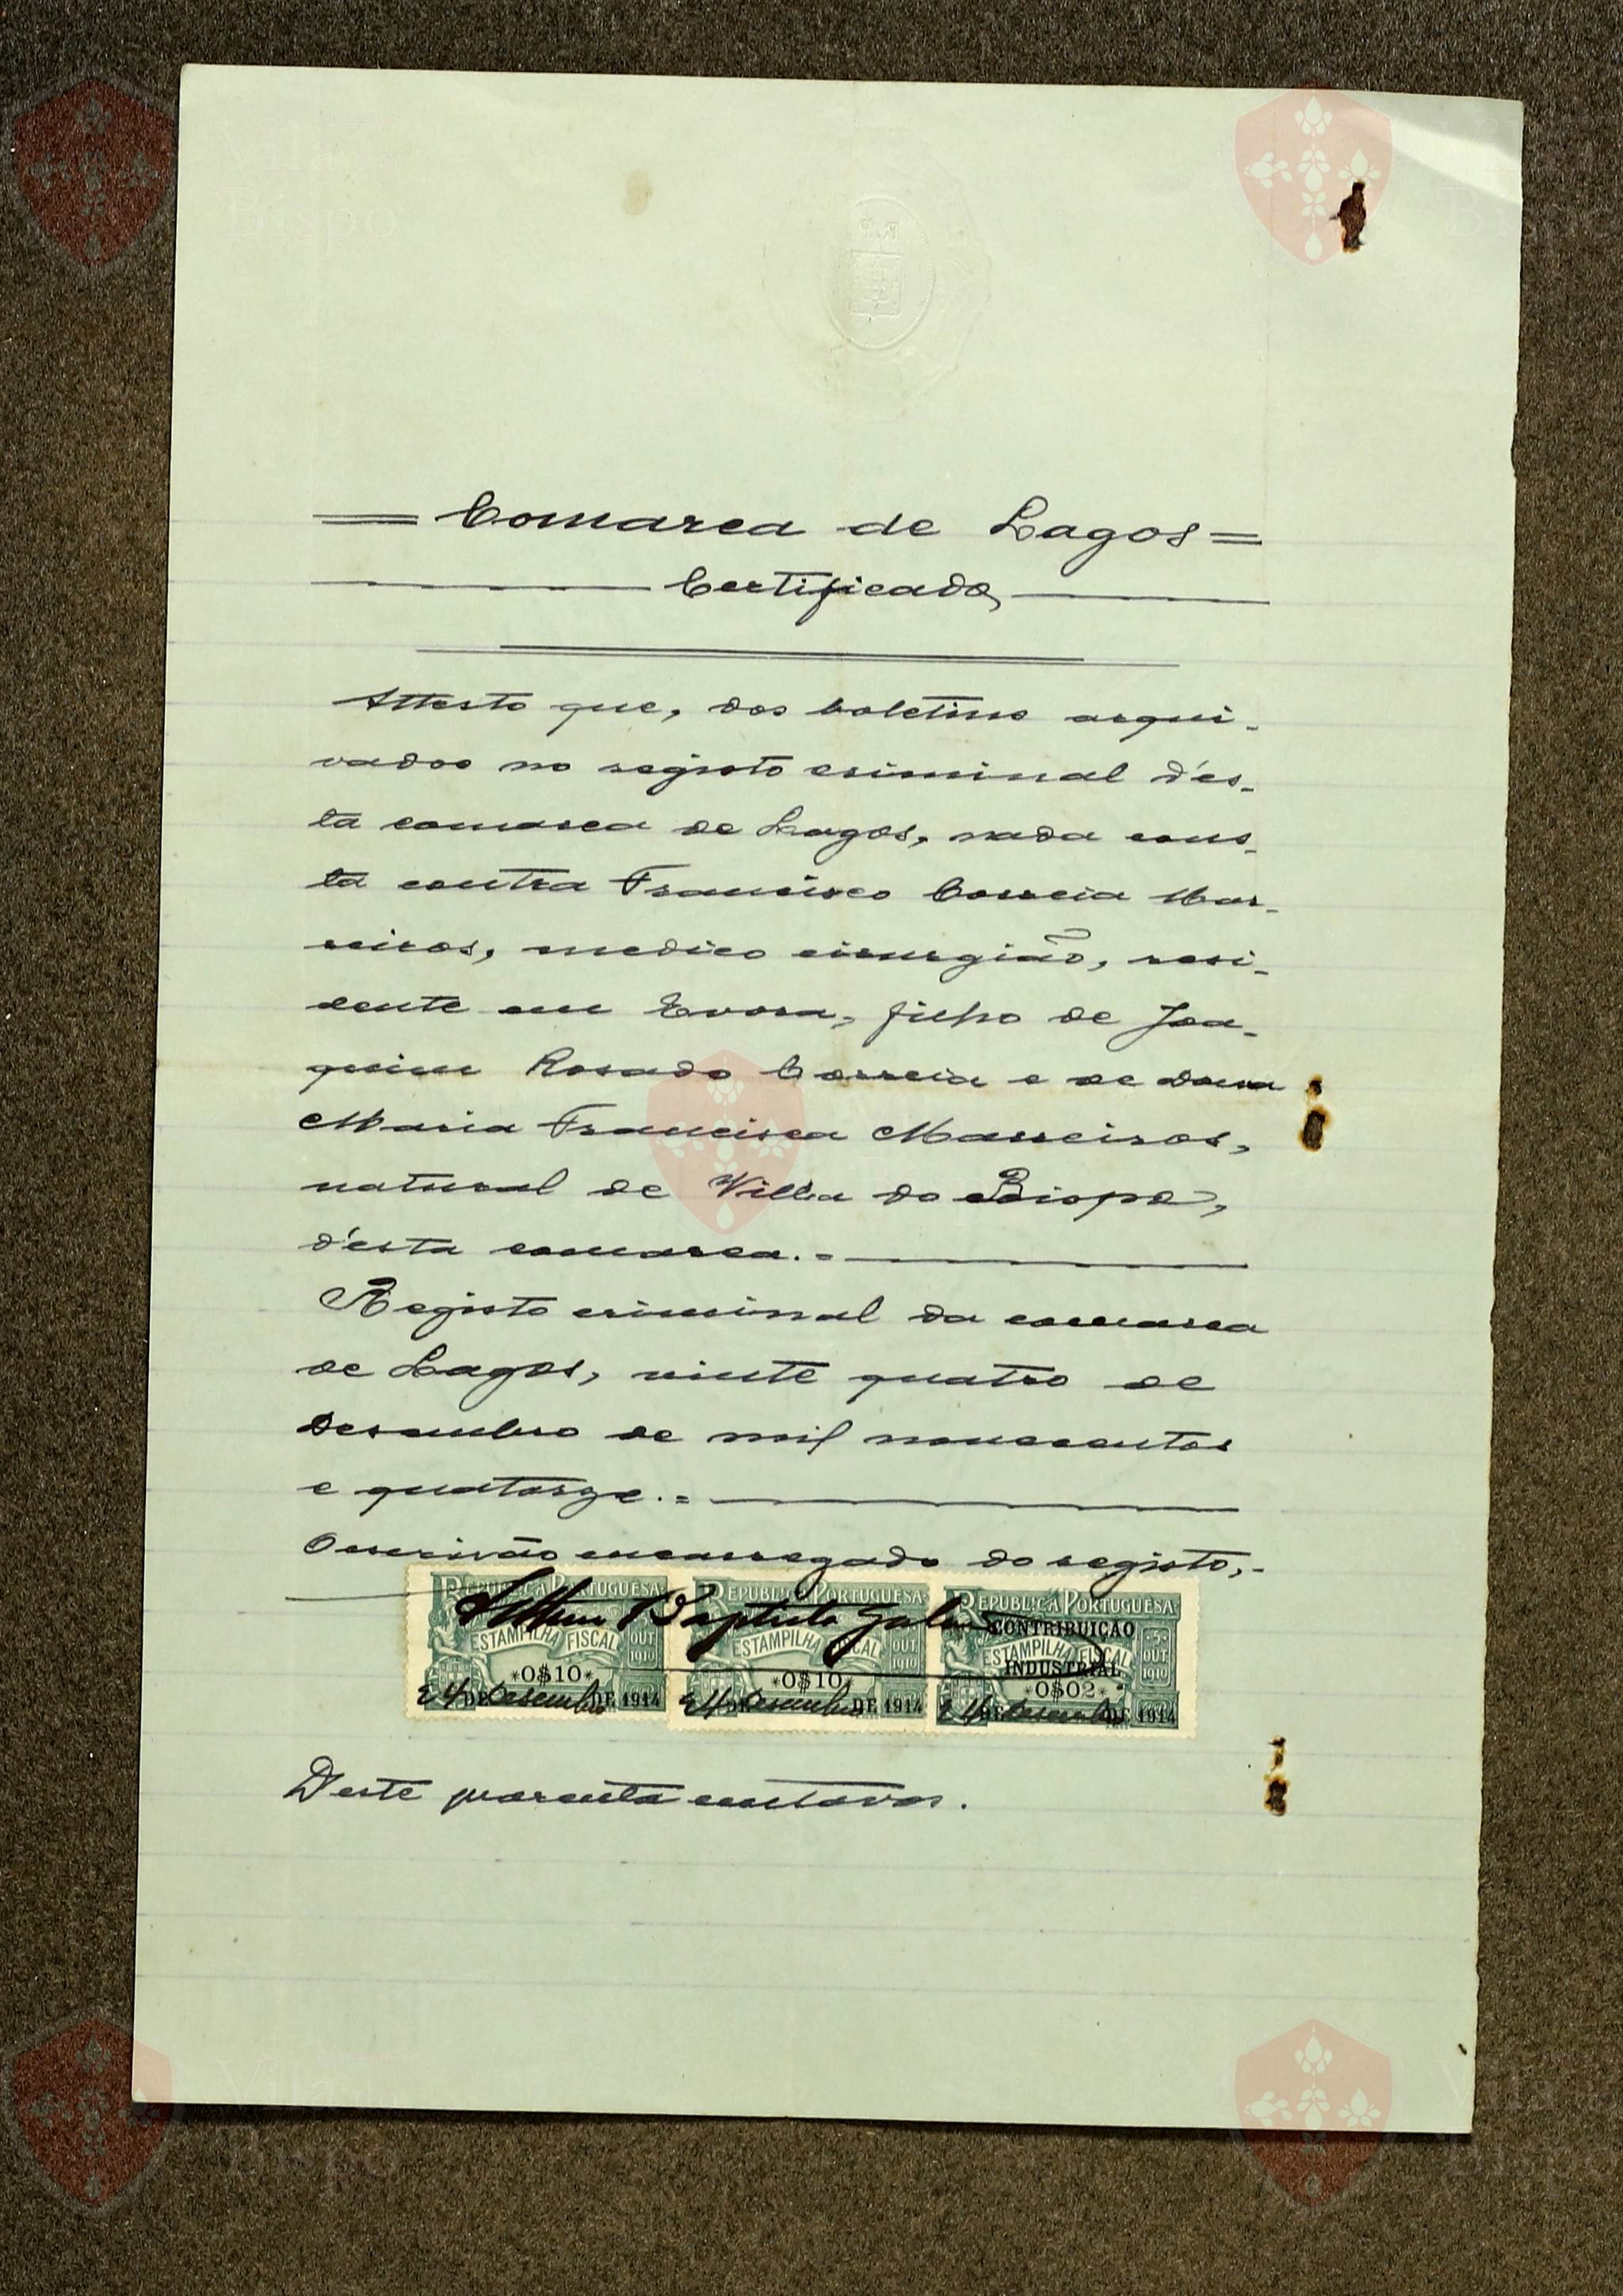 = Comarca de Lagos =
Certificado,
Attesto que, dos boletins arqui-
vados no registo criminal d'es-
ta comarca de Lagos, nada cons-
ta contra Francisco Correia Mar-
reiros, medico cirurgião, resi-
dente em Evora, filho de Joa-
quim Rosado Correia e de Dona
Maria Francisca Marreiros,
natural de Villa do Bispo,
d'esta comarca. =
Registo criminal da comarca
de Lagos, vinte quatro de
Desembro de mil novecentos
e quatorze. =
O escrivão encarregado do registo, -
REPUBLICA PORTUGUESA REPUBLICA PORTUGUESA REPUBLICA PORTUGUESA
Baptista
CONTRIBUIÇÃO
ESTAMPILHA FISCAL 5 OUT 1910 ESTAMPILHA FISCAL 5 OUT 1910 ESTAMPILHA FISCAL 5 OUT 1910
INDUSTRIAL
*0$10* *0$10* *0$02*
24 DE Desembro DE 1914 24 DE Desembro DE 1914 24 DE Desembro DE 1914
Deste quarenta centavos.
Vila do
Bispo